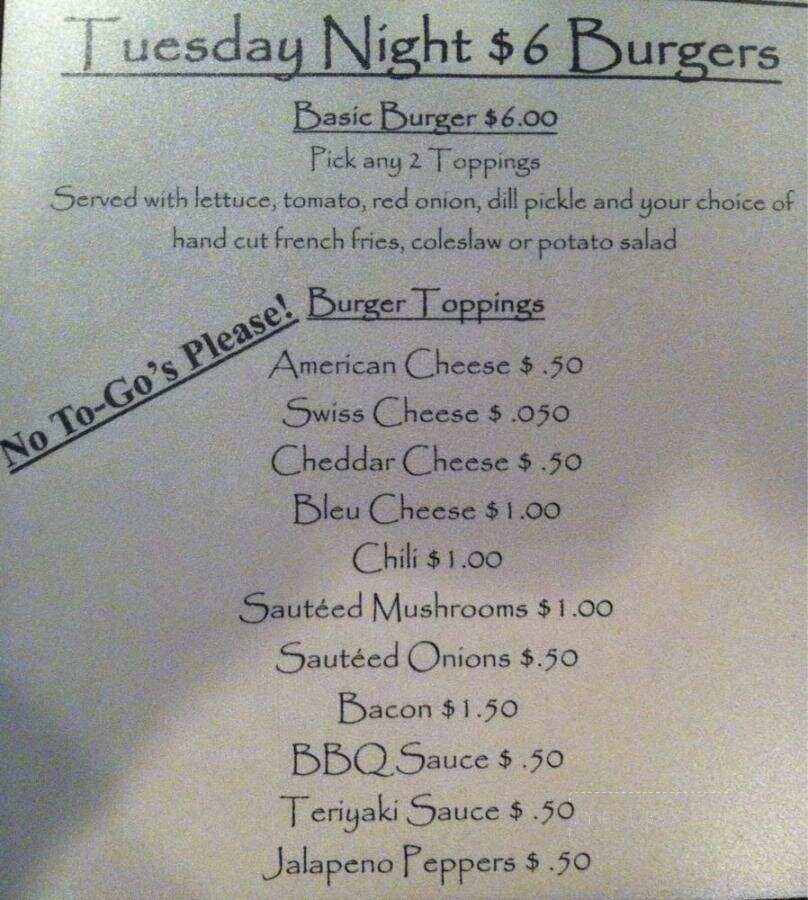 Tuesday Night $6 Burgers
Basic Burger $6.00
Pick any 2 Toppings
Served with lettuce, tomato, red onion, dill pickle and your choice of
hand cut french fries, coleslaw or potato salad
No To-Go's Please!
Burger Toppings
American Cheese $ .50
Swiss Cheese $ .050
Cheddar Cheese $ .50
Bleu Cheese $1.00
Chili $1.00
Sautéed Mushrooms $1.00
Sautéed Onions $.50
Bacon $1.50
BBQ Sauce $ .50
Teriyaki Sauce $ .50
Jalapeno Peppers $ .50